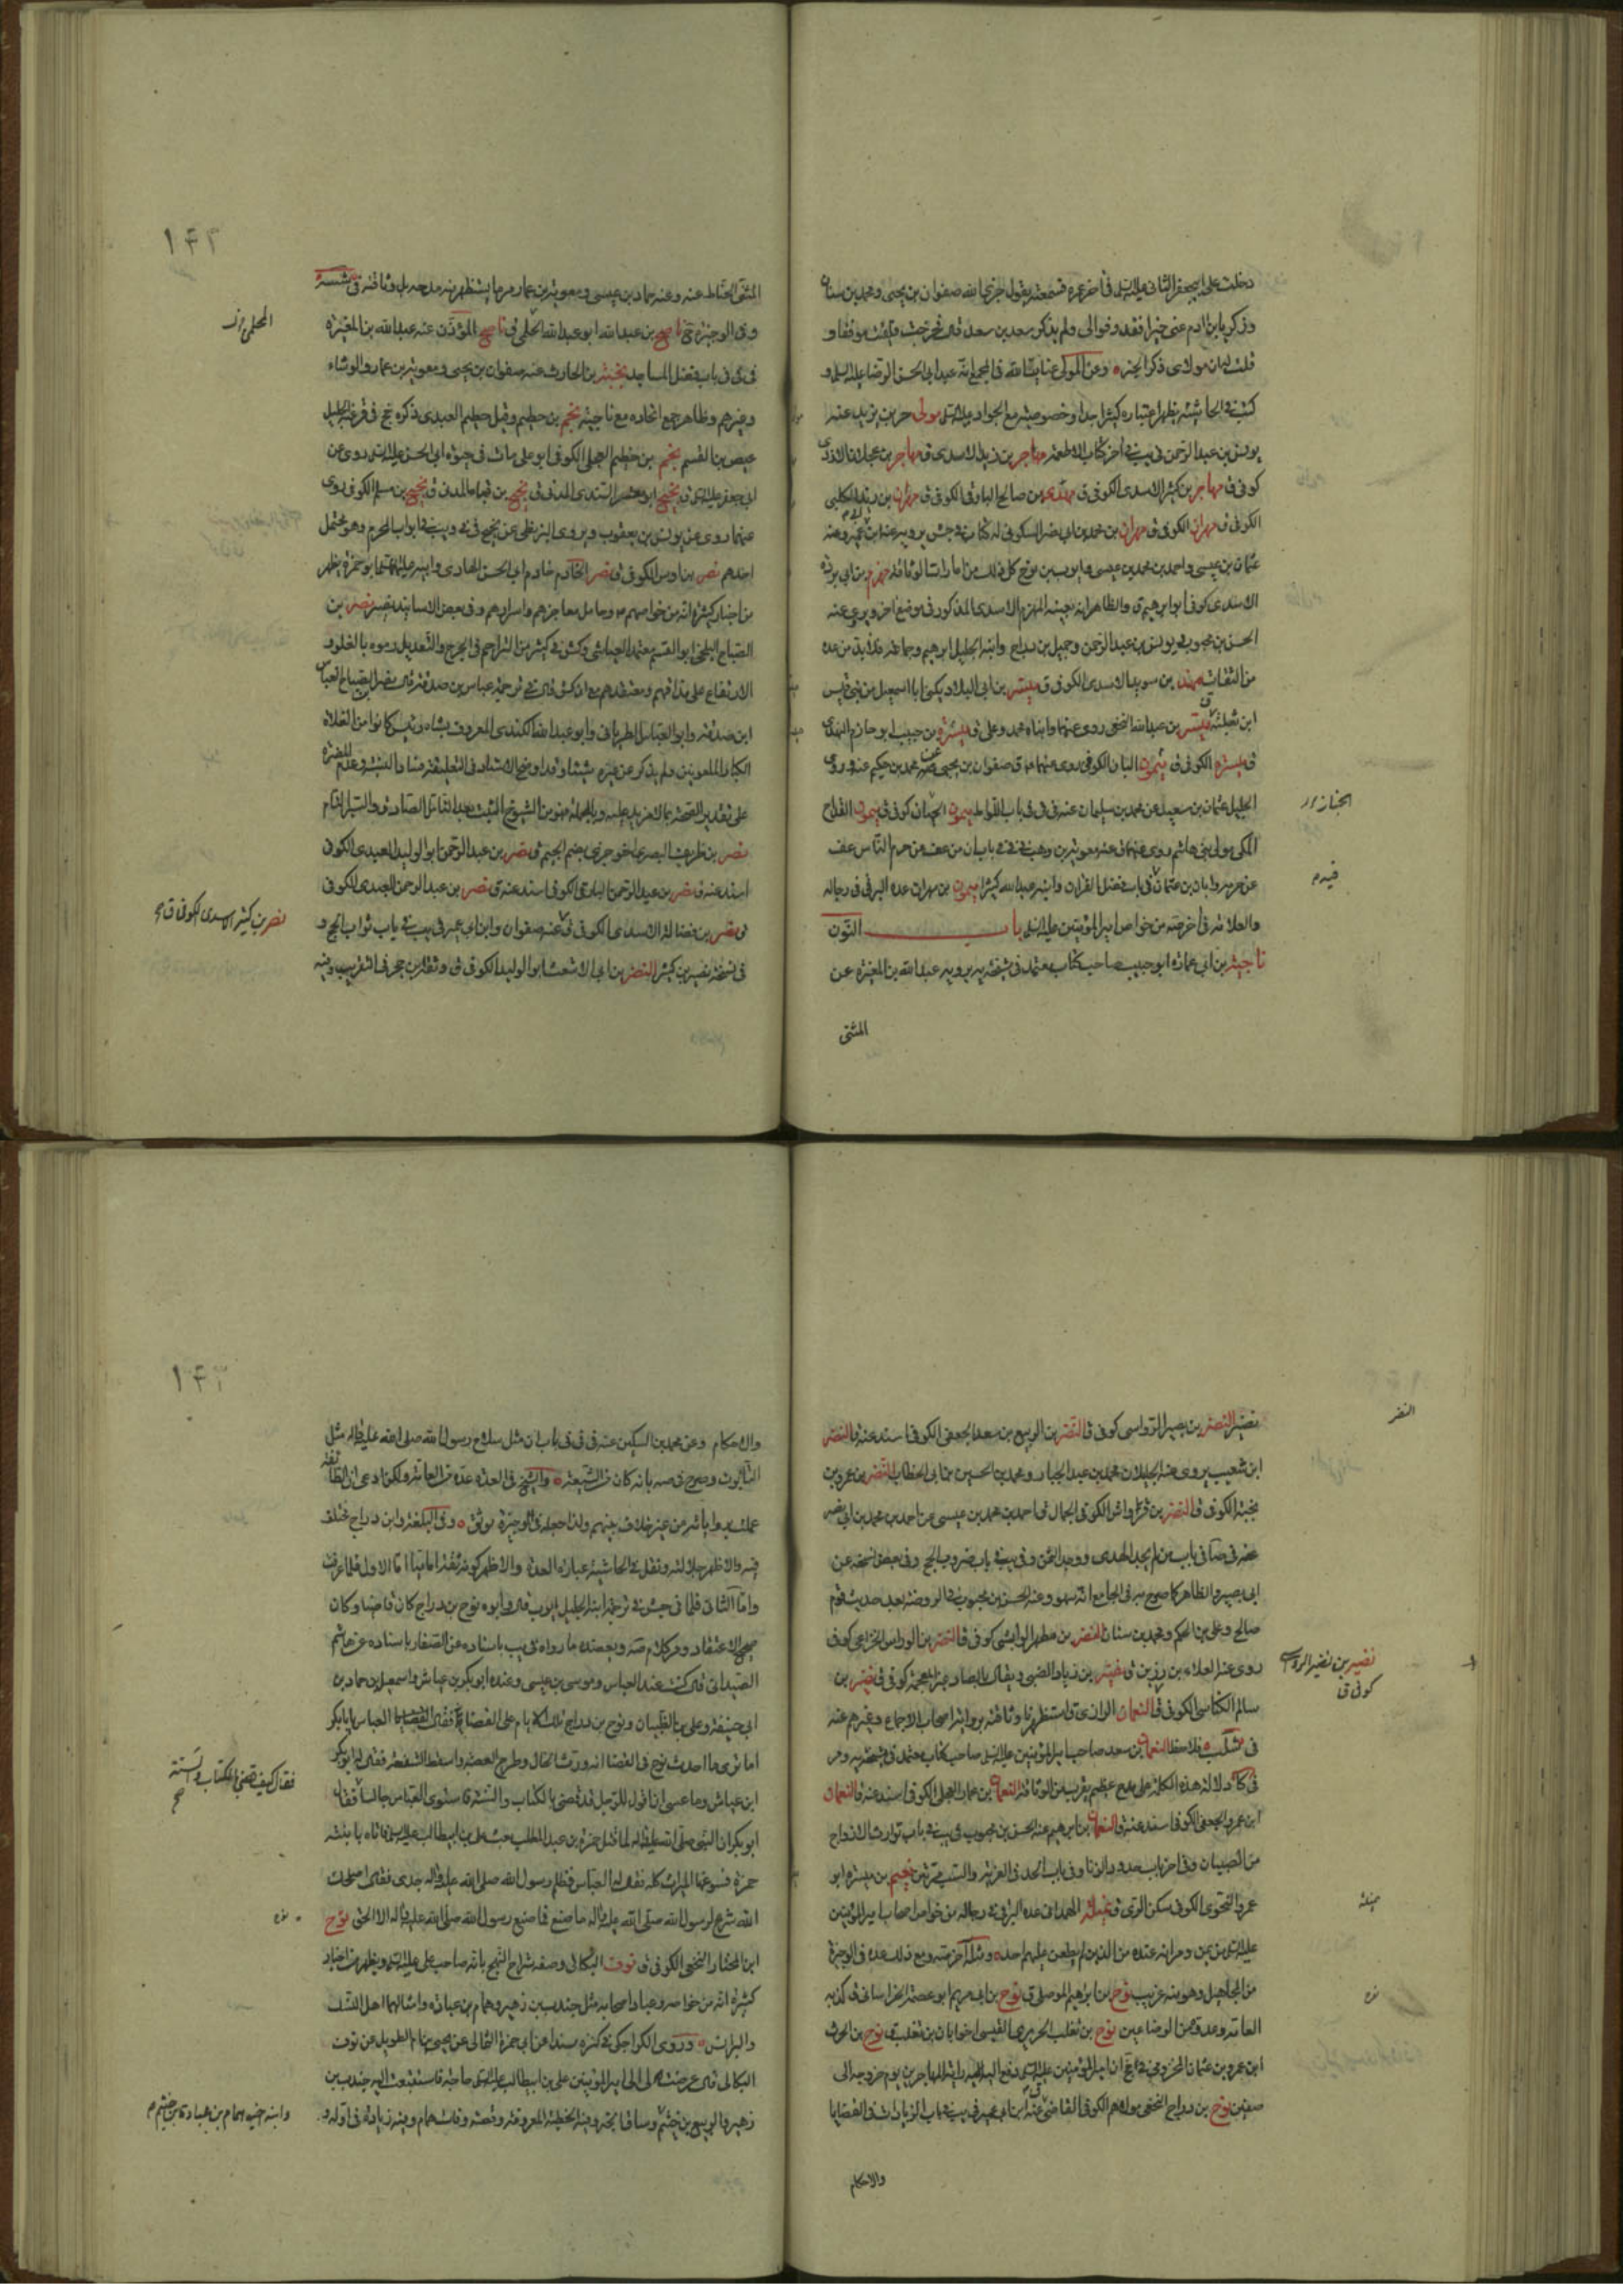 دخلت على ابيجعفر الثانى عليه السلم فى اخر عمره فسمعته يقول جزى الله صفوان بن يحيى ومحمد بن سنان
وزكريا بن ادم عنى خيرا فقد وفوا لى ولم يذكر سعد بن سعد قال فخرجت فلقيت موفقا و
قلت له ان مولاى ذكر الخبر وعن المولى عناية الله فى المجمع انه عبد ابى الحسن الرضا عليه السلم و
كتب فى الحاشية يظهر اعتباره كثيرا جدا وخصوصيته مع الجواد عليه السلم مولى حر بن يزيد عنه
يونس بن عبد الرحمن فى يب فى اخر كتاب الاطعمه مهاجر بن زيد الاسدى ق مهاجر بن عجلان الازدى
كوفى ق مهاجر بن كثير الاسدى الكوفى ق مهدى بن صالح البارقى الكوفى ق مهران بن زيد الكلبى
الكوفى ق مهران الكوفى ق مهران بن محمد بن ابى نصر السكونى له كتاب فى جش يرويه عنه ابن ابى عمير وعنه
عثمان بن عيسى واحمد بن محمد بن عيسى وايوب بن نوح كل ذلك من امارات الوثاقة مهزم بن ابى بردة
الاسدى كوفى ابو ابرهيم ق والظاهر انه بعينه المهزم الاسدى المذكور فى موضع اخر ويروى عنه
الحسن بن محبوب ويونس بن عبد الرحمن وجميل بن دراج وابنه الجليل ابرهيم وجماعة فلا بد من عده
من الثقات مهند بن سويد الاسدى الكوفى ق ميسر بن ابى البلاد يكنى ابا اسمعيل من بنى قيس
ابن ثعلبة ق ميسر بن عبد الله النخعى روى عنهما وابناه محمد وعلى ق ميسرة بن حبيب ابو حازم النهدى
ق ميسرة الكوفى ق ميمون البان الكوفى روى عنهما ق صفوان بن يحيى عن محمد بن حكيم عنه وروى
الجليل عثمان بن سعيد عن محمد بن سليمان عنه فى فى باب اللواط ميمون الجبان كوفى ق ميمون القداح
المكى مولى بنى هاشم روى عنهما عنه معوية بن وهب فى فى باب ان من عف عن حرم الناس عف
عن حرمه وابان بن عثمان فى باب فضل القران وابنه عبد الله كثيرا ميمون بن مهران عده البرقى فى رجاله
والعلامة فى اخر صه من خواص امير المؤمنين عليه السلم باب النون
ناجية بن ابى عمارة ابو حبيب صاحب كتاب معتمد فى مشيخة يه يرويه عبد الله بن المغيرة عن
المثنى
الخباز ر
المثنى الحناط عنه وعنه حماد بن عيسى ومعوية بن عمار مر ما يستظهر منه مدحه بل وثاقته فى
وفى الوجيزة ح ناصح بن عبد الله ابو عبد الله المحلى ق ناصح المؤذن عنه عبد الله بن المغيرة
فى فى فى باب فضل المساجد نجبة بن الحارث عنه صفوان بن يحيى ومعوية بن عمار والوشاء
وغيرهم وظاهر جمع اتحاده مع ناجية نجم بن حطيم وقيل حطيم العبدى ذكره جخ فى ق عنه الجليل
عيص بن القسم نجم بن خطيم العجلى الكوفى ابو على مات فى حيوة ابى الحسن عليه السلم روى عن
ابى جعفر عليه السلم ق نجيح ابو معشر السندى المدنى ق نجيح بن قباء المدنى ق نجيح بن مسلم الكوفى روى
عنهما روى عن يونس بن يعقوب ويروى البزنطى عن نجيح فى فى ويب فى ابواب المحرم وهو محتمل
احدهم نصر بن اوس الكوفى ق نصر الخادم خادم ابى الحسن الهادى وابنه عليهما السلم ابو حمزة يظهر
من اخبار كثيرة انه من خواصهم وحامل معاجزهم واسرارهم وفى بعض الاسانيد نصير نصر بن
الصباح البلخى ابو القسم معتمد العياشى وكش فى كثير من التراجم فى الجرح والتعديل رموه بالغلو و
الارتفاع على مذاقهم ومعتقدهم مع ان كش قال فى ترجمة عباس بن صدقة قال نصر بن الصباح العباس
ابن صدقة وابو العباس الطرنانى وابو عبد الله الكندى المعروف بشاه رئيس كانوا من الغلاة
الكبار الملعونين ولم يذكر عن غيره شيئا وقد اوضح الاستاد فى التعليقة فساد النسبة وعدم المضرة
على تقدير الصحة بما لا مزيد عليه وبالجملة فهو من الشيوخ المثبت بعد القائل الصادق والستر التام
نصر بن ظريف البصرى اخو جزى بضم الجيم ق نصر بن عبد الرحمن ابو الوليد العبدى الكوفى
اسند عنه ق نصر بن عبد الرحمن البارقى الكوفى اسند عنه ق نصر بن عبد الرحمن العبدى الكوفى
ق نصر بن فضالة الاسدى الكوفى ق عنه صفوان وابن ابى عمير فى يب فى باب ثواب الحج و
فى نسخة نصير بن كثير النضر بن ابى الاشعث ابو الوليد الكوفى ق وثقه ابن حجر فى التقريب ومنه
١٤٢
المحلى
نصر بن كثير الاسدى الكوفى ق
نصير النضر بن بصير الرواسى كوفى ق النضر بن الربيع بن سعد الجعفى الكوفى اسند عنه ق النضر
ابن شعيب يروى عنه الجليلان محمد بن عبد الجبار ومحمد بن الحسين بن ابى الخطاب النضر بن عمرو بن
نجبة الكوفى ق النضر بن قرواش الكوفى الجمال ق احمد بن محمد بن عيسى عن احمد بن محمد بن ابى نصر
عنه فى صا فى باب من لم يجد الهدى ووجد الثمن وفى يب فى باب ضروب الحج وفى بعض نسخه عن
ابى بصير والظاهر كما صرح به فى الجامع انه سهو وعنه الحسن بن محبوب فى الروضة بعد حديث قوم
صالح وعلى بن الحكم ومحمد بن سنان النضر بن مطهر الوابشى كوفى ق النضر بن الوراس الخزاعى كوفى
روى عنه العلاء بن رزين ق نضير بن زياد الضبى ويقال بالصاد غير المعجمة كوفى ق نضير بن
سالم الكناسى الكوفى ق النعمان الرازى ق استظهرنا وثاقته برواية اصحاب الاجماع وغيرهم عنه
فى فلاحظ النعمان بن سعد صاحب امير المؤمنين عليه السلم صاحب كتاب معتمد فى مشيخة يه ومر
فى دلالة هذه الكلمة على مدح عظيم يقرب من الوثاقة النعمان بن عمار العجلى الكوفى اسند عنه ق النعمان
ابن عمرو الجعفى الكوفى اسند عنه ق النعمان بن ابرهيم عنه الحسن بن محبوب فى يب فى باب توارث الازواج
من الصبيان وفى اخر باب حدود الزنا وفى باب الحد فى الفرية والسب مرتين نعيم بن ميسرة ابو
عمرو النحوى الكوفى سكن الرى ق الهمدانى عده البرقى فى رجاله من خواص اصحاب امير المؤمنين
عليه السلم من يمن ومر انه عنده من الذين لم يطعن عليهم احد ومثله اخر صه ومع ذلك عده فى الوجيزة
من المجاهيل وهو منه غريب نوح بن ابرهيم الموصلى ق نوح بن ابى مريم ابو عصمة الخراسانى ق كذبه
العامة وعدوه من الوضاعين نوح بن تغلب الحريرى القيسى اخو ابان بن تغلب ق نوح بن الحرث
ابن عمرو بن عثمان المخزومى فى ان امير المؤمنين عليه السلم دفع اليه راية المهاجرين يوم خروجه الى
صفين نوح بن دراج النخعى مولاهم الكوفى القاضى ق عنه ابن ابى عمير فى يب فى باب الزيادات فى القضايا
والاحكام
النضر
نضير بن نضير
كوفى ق
والاحكام وعن محمد بن السكين عنه فى فى فى باب ان مثل سلاح رسول الله صلى الله عليه واله مثل
التابوت وصرح فى صه بانه كان من الشيعة والشيخ فى العدة عده من العامة ولكن ادعى ان الطائفة
عملت برواياته من غير خلاف بينهم ولذا جعله فى الوجيزة موثق وفى البلغة وابن دراج مختلف
فيه والاظهر جلالته ونقل فى الحاشية عبارة العدة والاظهر كونه ثقة اماميا اما الاول فلما عرفت
واما الثانى فلما فى جش فى ترجمة ابنه الجليل ايوب قال وابوه نوح بن دراج كان قاضيا وكان
صحيح الاعتقاد ومر كلام صه ويعضده ما رواه فى يب باسناده عن الصفار باسناده عن هاشم
الصيدانى قال كنت عند العباس وموسى بن عيسى وعنده ابو بكر بن عياش واسمعيل بن حماد بن
ابى حنيفة وعلى بن الظبيان ونوح بن دراج تلك الايام على القضاء فقال العباس يا ابا بكر
اما ترى ما احدث نوح فى القضاء انه ورث الخال وطرح العصبة واسقط الشفعة فقال له ابو بكر
ابن عياش وما عسى ان اقول للرجل قد قضى بالكتاب والسنة فاستوى العباس جالسا فقال
ابو بكر ان النبى صلى الله عليه واله لما قتل حمزة بن عبد المطلب بعث على بن ابيطالب عليه السلم فاتاه بابنته
حمزة فسوغها الميراث كله فقال له العباس فظلم رسول الله صلى الله عليه واله جدى فقال
الله شرع لرسول الله صلى الله عليه واله ما صنع فما صنع رسول الله صلى الله عليه واله الا الحق نوح
ابن المختار النخعى الكوفى ق نوف البكالى وصفه شراح النهج بانه صاحب على عليه السلم ويظهر من اخبار
كثيرة انه من خواصه وعباد اصحابه مثل جندب بن زهير وهمام بن عباده وامثالهما اهل الشف
والبرانس وروى الكراجكى فى كنزه مسندا عن ابى حمزة الثمالى عن يحيى بن ام الطويل عن نوف
البكالى قال عرضت لى الى امير المؤمنين على بن ابيطالب عليه السلم حاجة فاستتبعت اليه جندب بن
زهير والربيع بن خثيم وساق الخبر وفيه الخطبة المعروفة وقصة وفات همام وفيه زيادة فى اوله و
١٤٣
فقال كيف قضى بالكتاب والسنة
وابن اخيه همام بن عباده بن خثيم